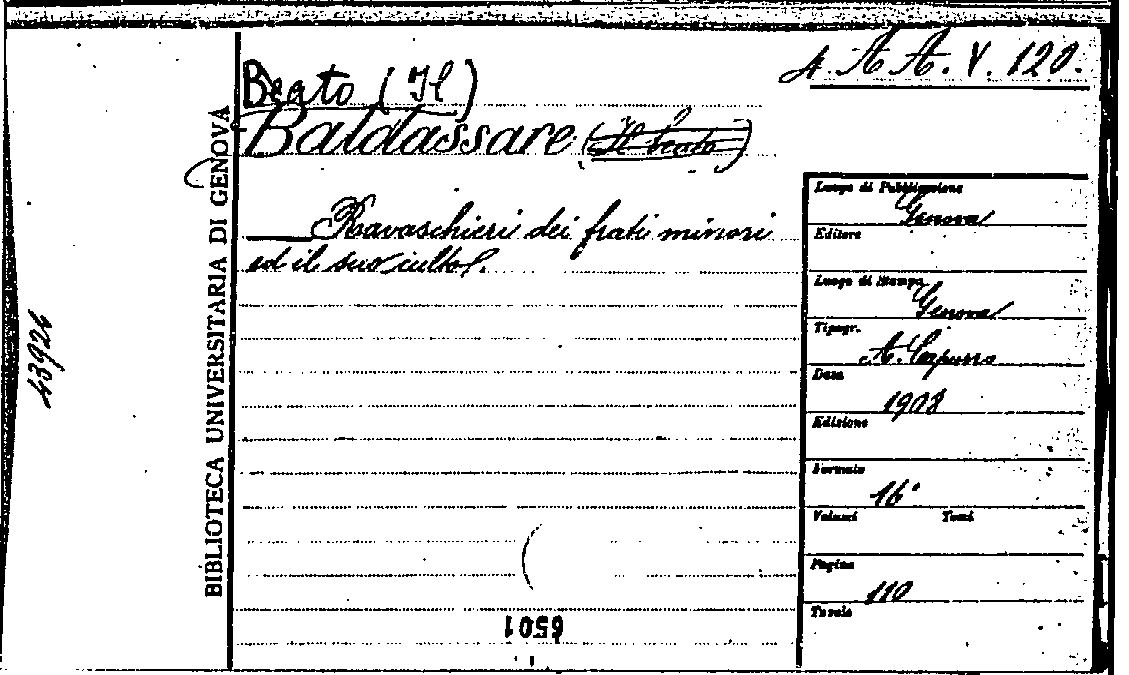 4. A A. V. 120.
Beato (Il)
Baldassare (Il beato)
Ravaschieri dei frati minori
ed il suo culto.
BIBLIOTECA UNIVERSITARIA DI GENOVA
43924
Luogo di Pubblicazione
Genova
Editore
Luogo di Stampa
Genova
Tipogr.
A. Capurro
Data
1908
Edizione
Formato
16°
Volumi Tomi
Pagine
110
Tavole
6501